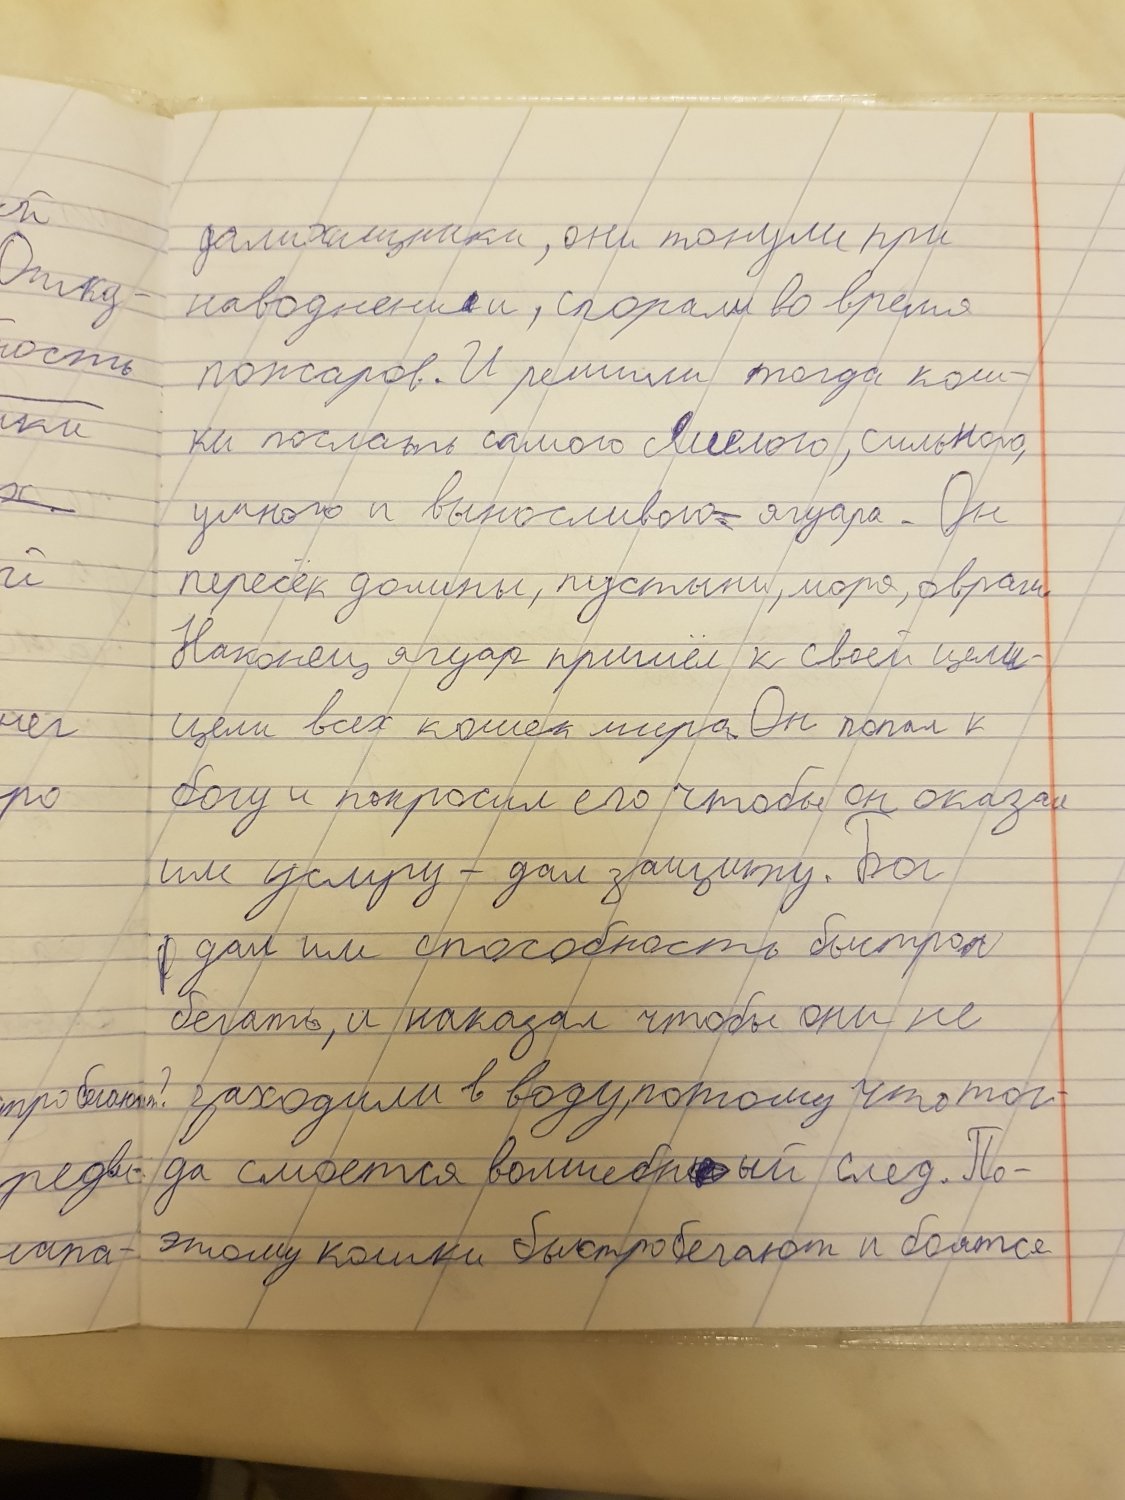 ей
Отку-
ность
шки
х.
й
нег
ро
стро бегают?
редви-
лапа-
дали хищники, они тонули при
наводнении, сгорали во время
пожаров. И решили тогда кош-
ки послать самого смелого, сильного,
умного и выносливого ягуара. Он
пересёк долины, пустыни, моря, овраги.
Наконец, ягуар пришёл к своей цели-
цели всех кошек мира. Он попал к
богу и попросил его чтобы он оказал
им услугу - дал защиту. Бог
дал им способность быстро
бегать, и наказал чтобы они не
заходили в воду, потому что тог-
да смоется волшебный след. По-
этому кошки быстро бегают и боятся